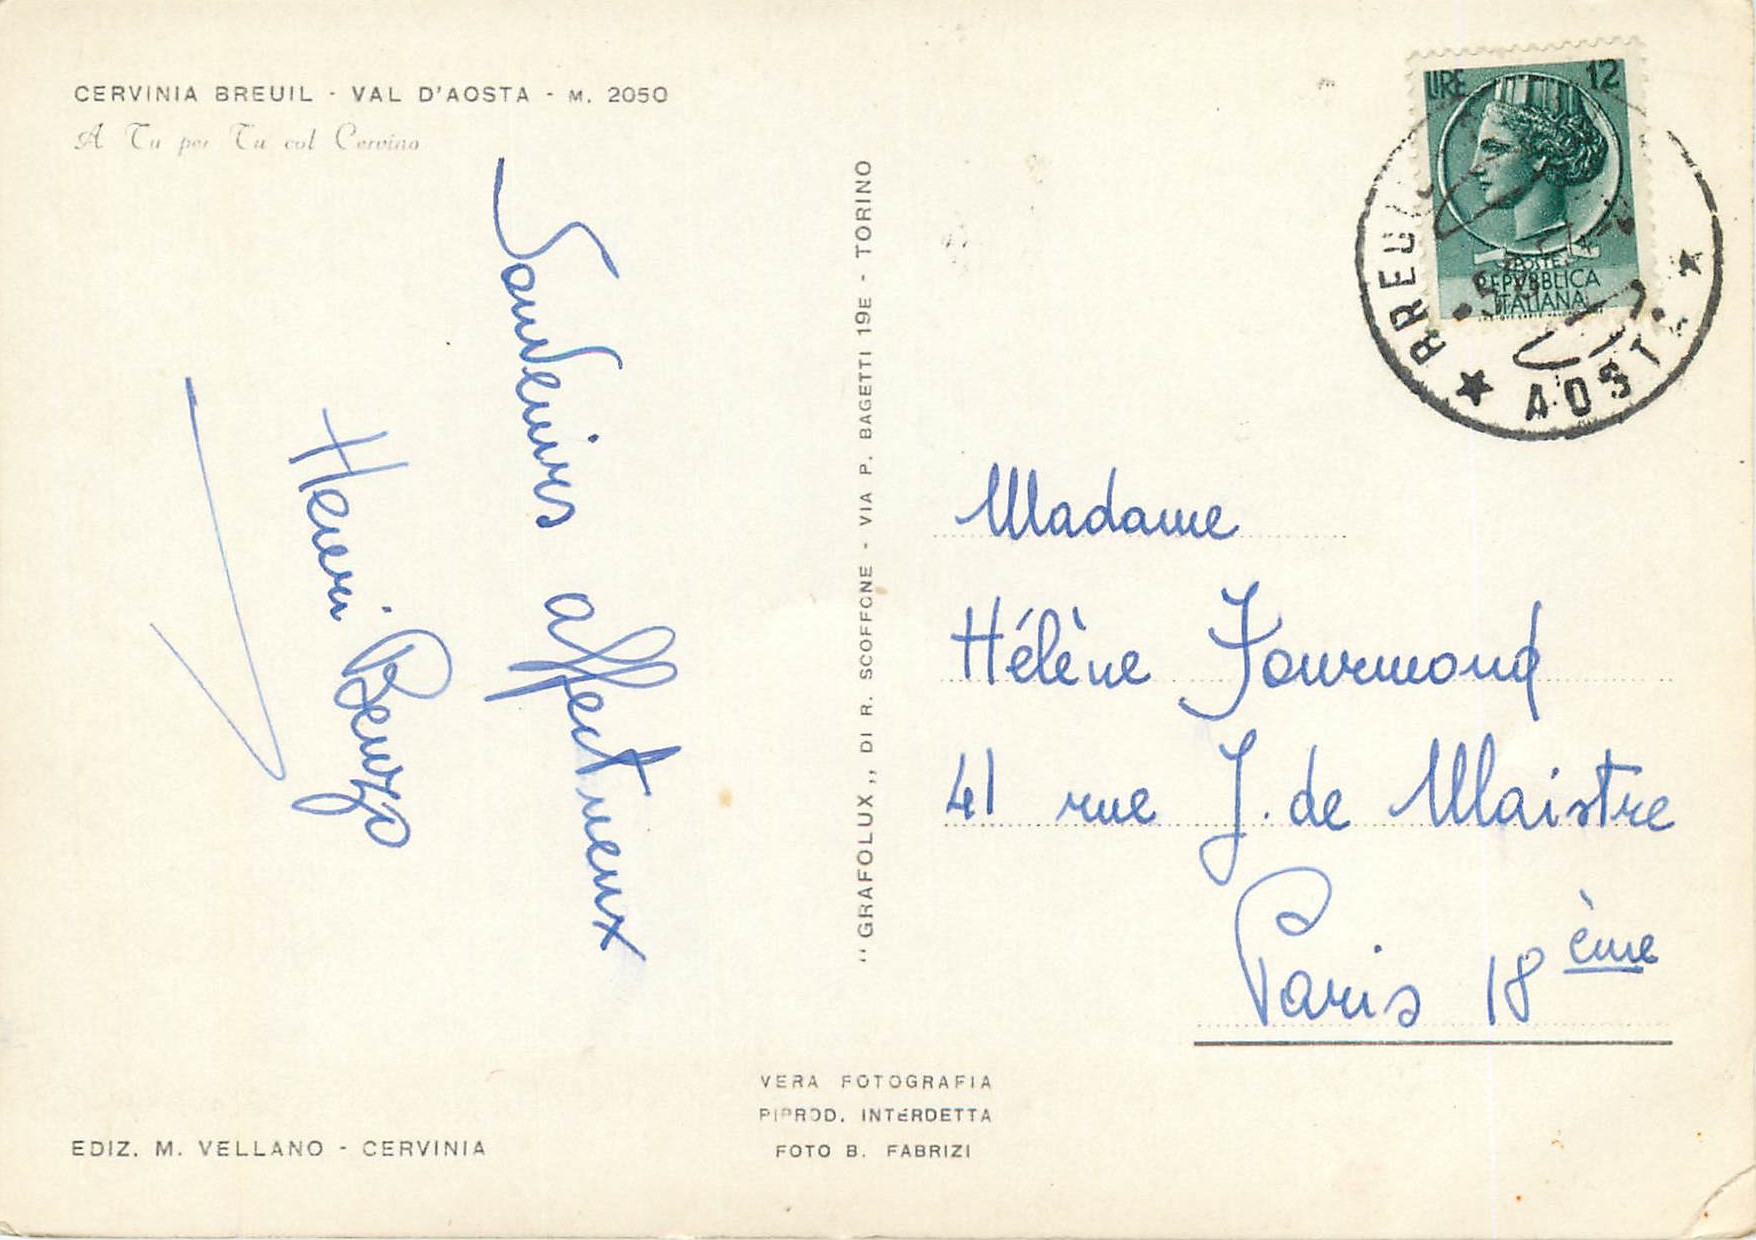 CERVINIA BREUIL - VAL D'AOSTA - M. 2050
A Tu per Tu col Cervino
Souvenirs affectueux
Henri Benzo
"GRAFOLUX„ DI R. SCOFFONE - VIA P. BAGETTI 19E - TORINO
LIRE 12
POSTE
REPVBBLICA
ITALIANA
BREUIL
AOSTA
Madame
Hélène Fourmond
41 rue J. de Maistre
Paris 18 ème
VERA FOTOGRAFIA
RIPROD. INTERDETTA
FOTO B. FABRIZI
EDIZ. M. VELLANO - CERVINIA